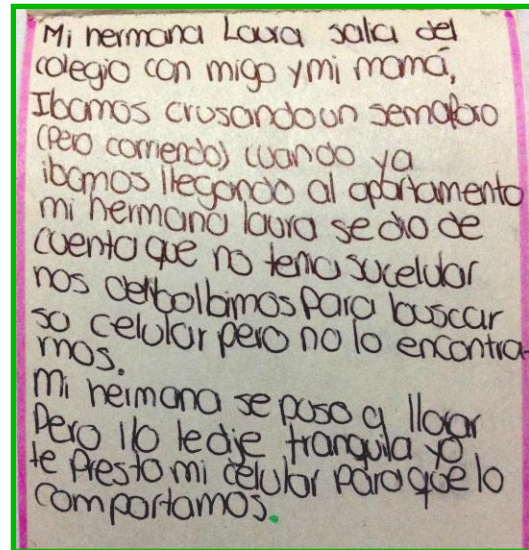 Mi hermana Laura salia del
colegio con migo y mi mamá,
Ibamos crusando un semaforo
(Pero corriendo) cuando ya
ibamos llegando al apartamento
mi hermana laura se dio de
cuenta que no tenia su celular
nos debolbimos Para buscar
so celular pero no lo encontra-
mos.
Mi heimana se poso a llorar
Pero llo le dije tranquila yo
te Presto mi celular para que lo
comportamos.